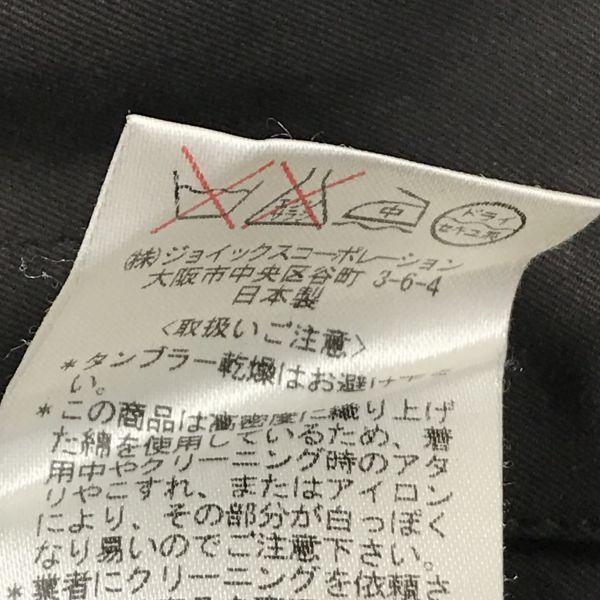 エンソ
サラシ
中
ドライ
セキユ系
(株)ジョイックスコーポレーション
大阪市中央区谷町 3-6-4
日本製
〈取扱いご注意〉
*タンブラー乾燥はお避け下さ
い。
*この商品は高密度に織り上げ
た綿を使用しているため、着
用中やクリーニング時のアタ
リやこすれ、またはアイロン
により、その部分が白っぽく
なり易いのでご注意下さい。
*業者にクリーニングを依頼さ